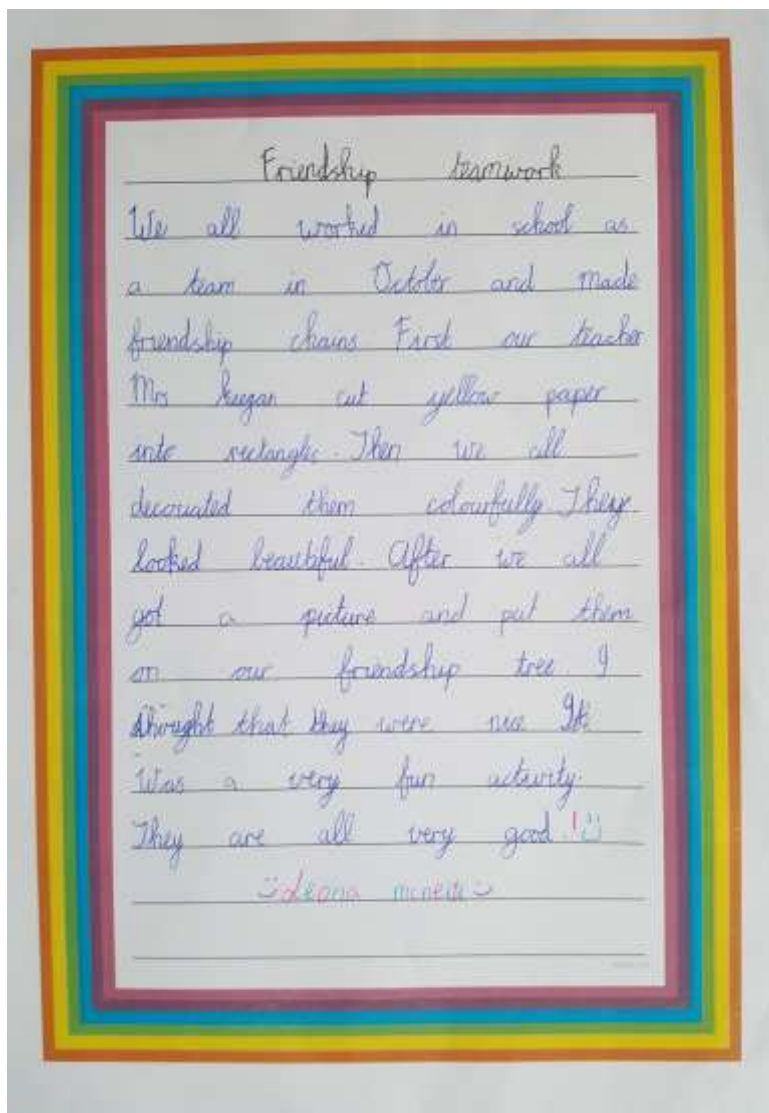 Friendship teamwork
We all worked in school as
a team in October and made
friendship chains First our teacher
Mrs Keegan cut yellow paper
into rectangles. Then we all
decorated them colourfully They
looked beautiful. After we all
got a picture and put them
on our friendship tree I
thought that they were nice It
Was a very fun activity.
They are all very good.!
Leona